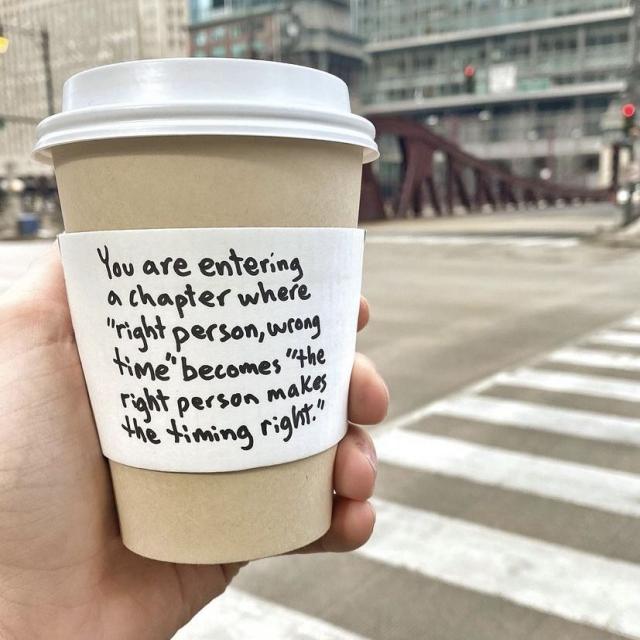 You are entering
a chapter where
"right person, wrong
time" becomes "the
right person makes
the timing right."